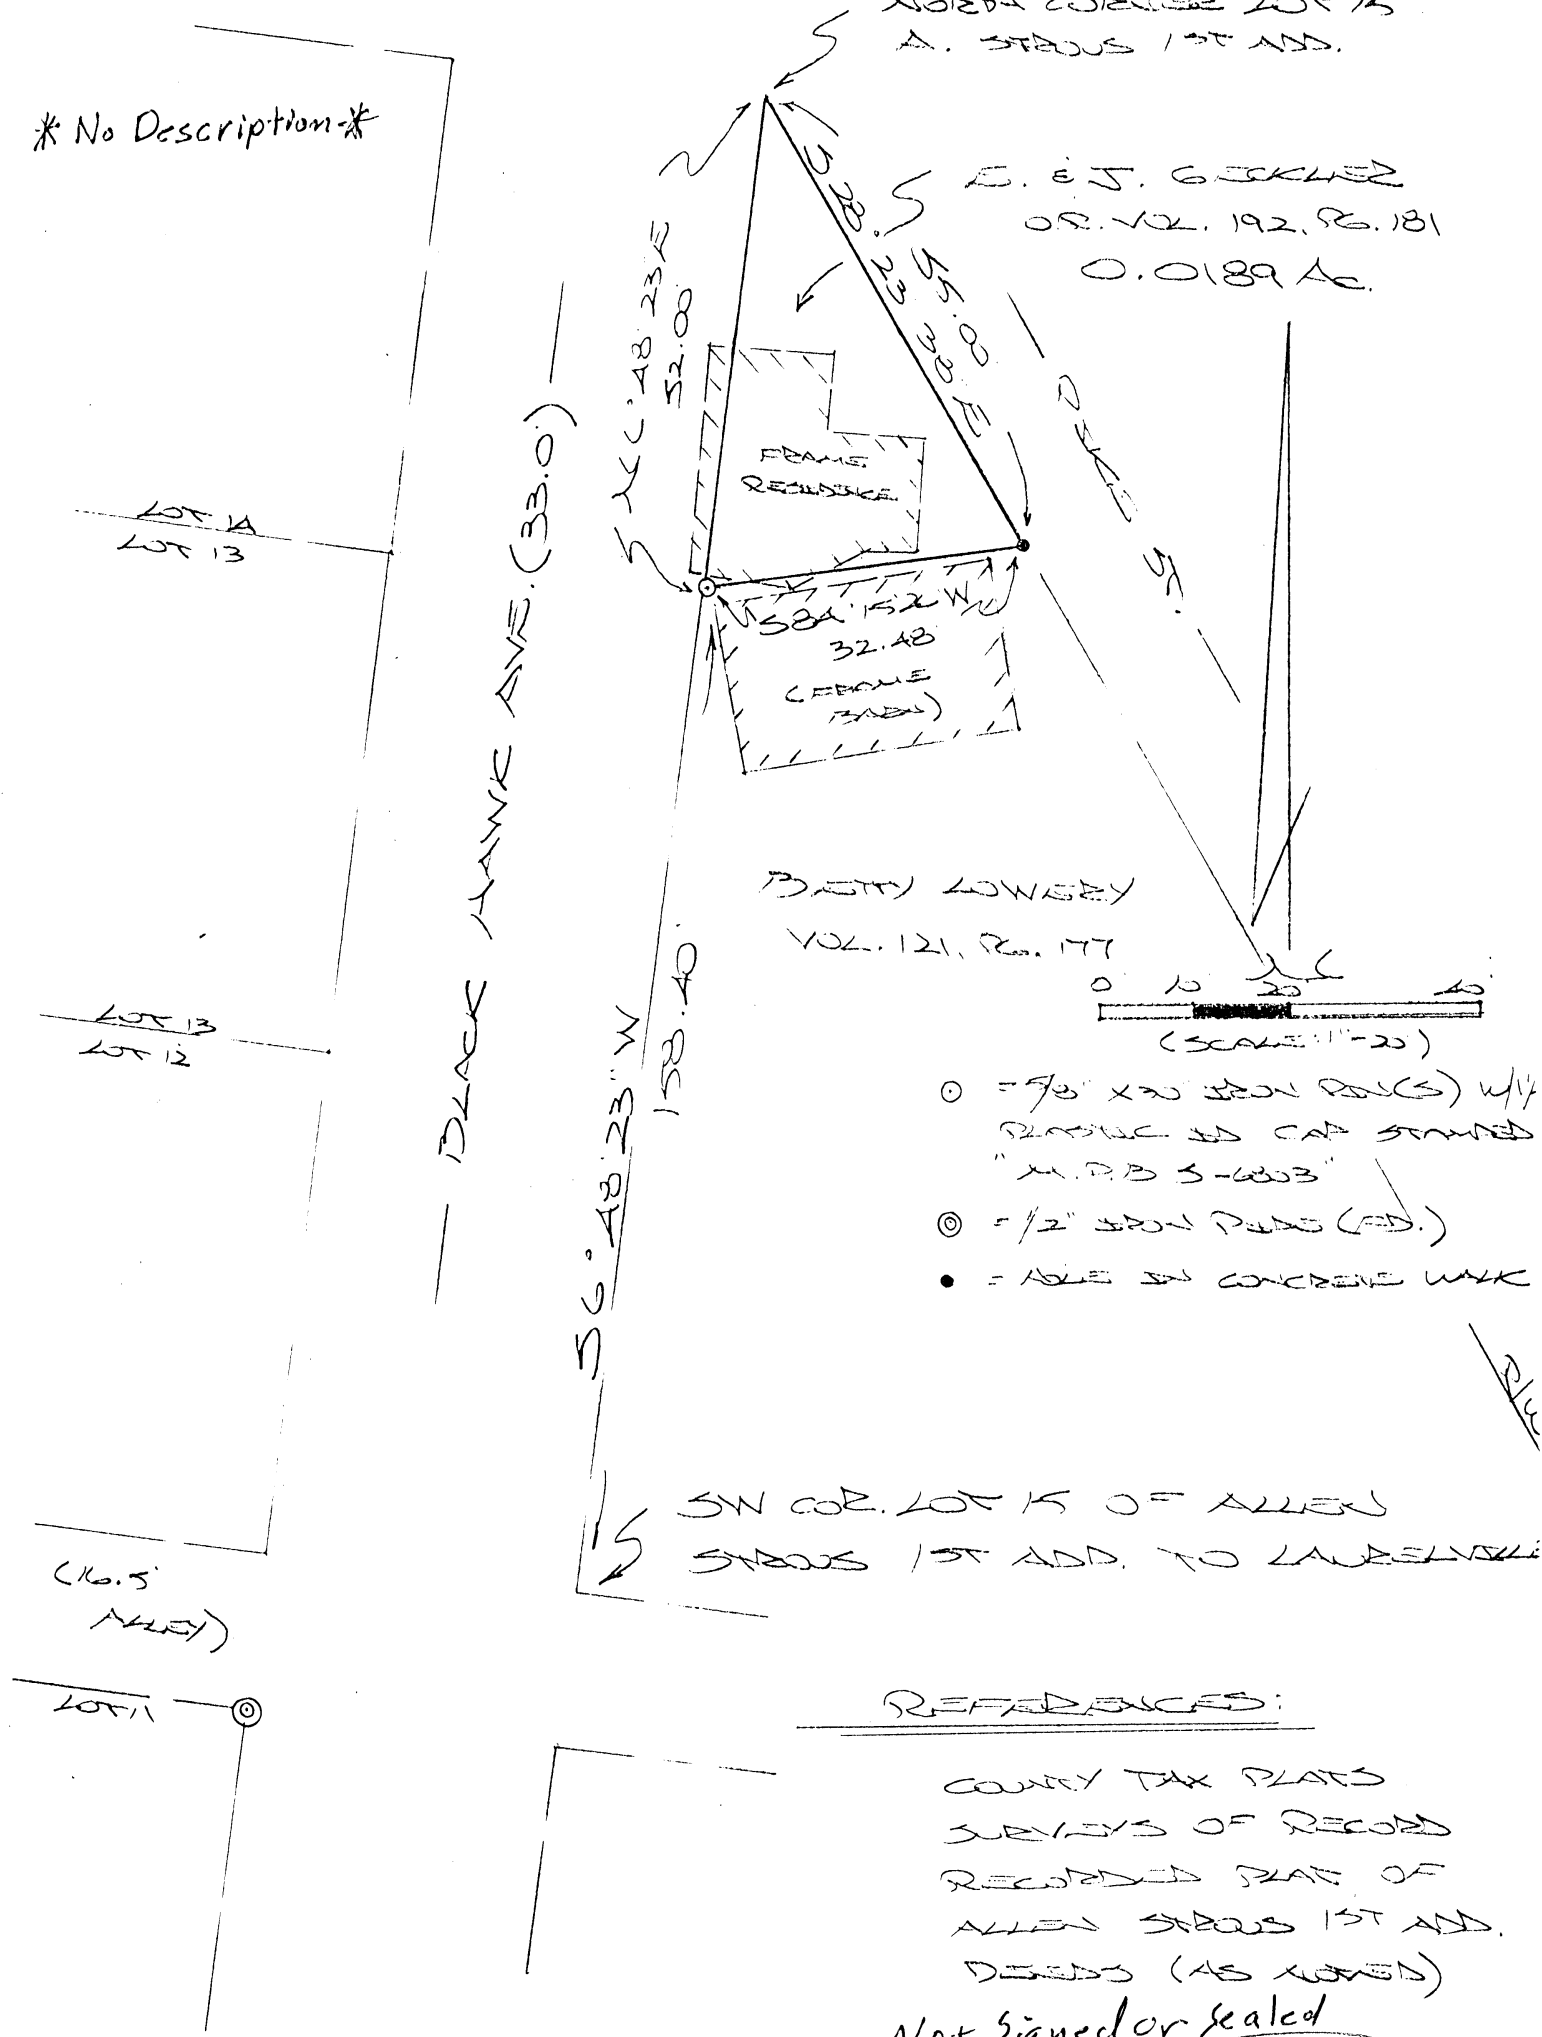 NORTH CORNER LOT 15
A. STROUS 1ST ADD.
* No Description *
E. & J. GICKLER
O.R. VOL. 192, PG. 181
0.0189 Ac.
N 6° 48' 23" E
52.00'
S 28° 23' 38" E
55.00'
PIKE ST.
FRAME
RESIDENCE
LOT 14
LOT 13
S 84° 15' 2" W
32.48'
(FRAME
BARN)
BLACK HAWK AVE. (33.0')
BETTY LOWERY
VOL. 121, PG. 177
LOT 13
LOT 12
S 6° 48' 23" W
158.40'
0 10 20 40'
(SCALE: 1"=20')
= 5/8" X 30" IRON PIN(S) W/1
PLASTIC ID CAP STAMPED
"M.P.B S-6803"
= 1/2" IRON PIPE (FD.)
= HOLE IN CONCRETE WALK
R/W
SW COR. LOT 15 OF ALLEN
STROUS 1ST ADD. TO LAURELVILLE
(16.5'
ALLEY)
LOT 11
REFERENCES:
COUNTY TAX PLATS
SURVEYS OF RECORD
RECORDED PLAT OF
ALLEN STROUS 1ST ADD.
DEEDS (AS NOTED)
Not Signed or Sealed